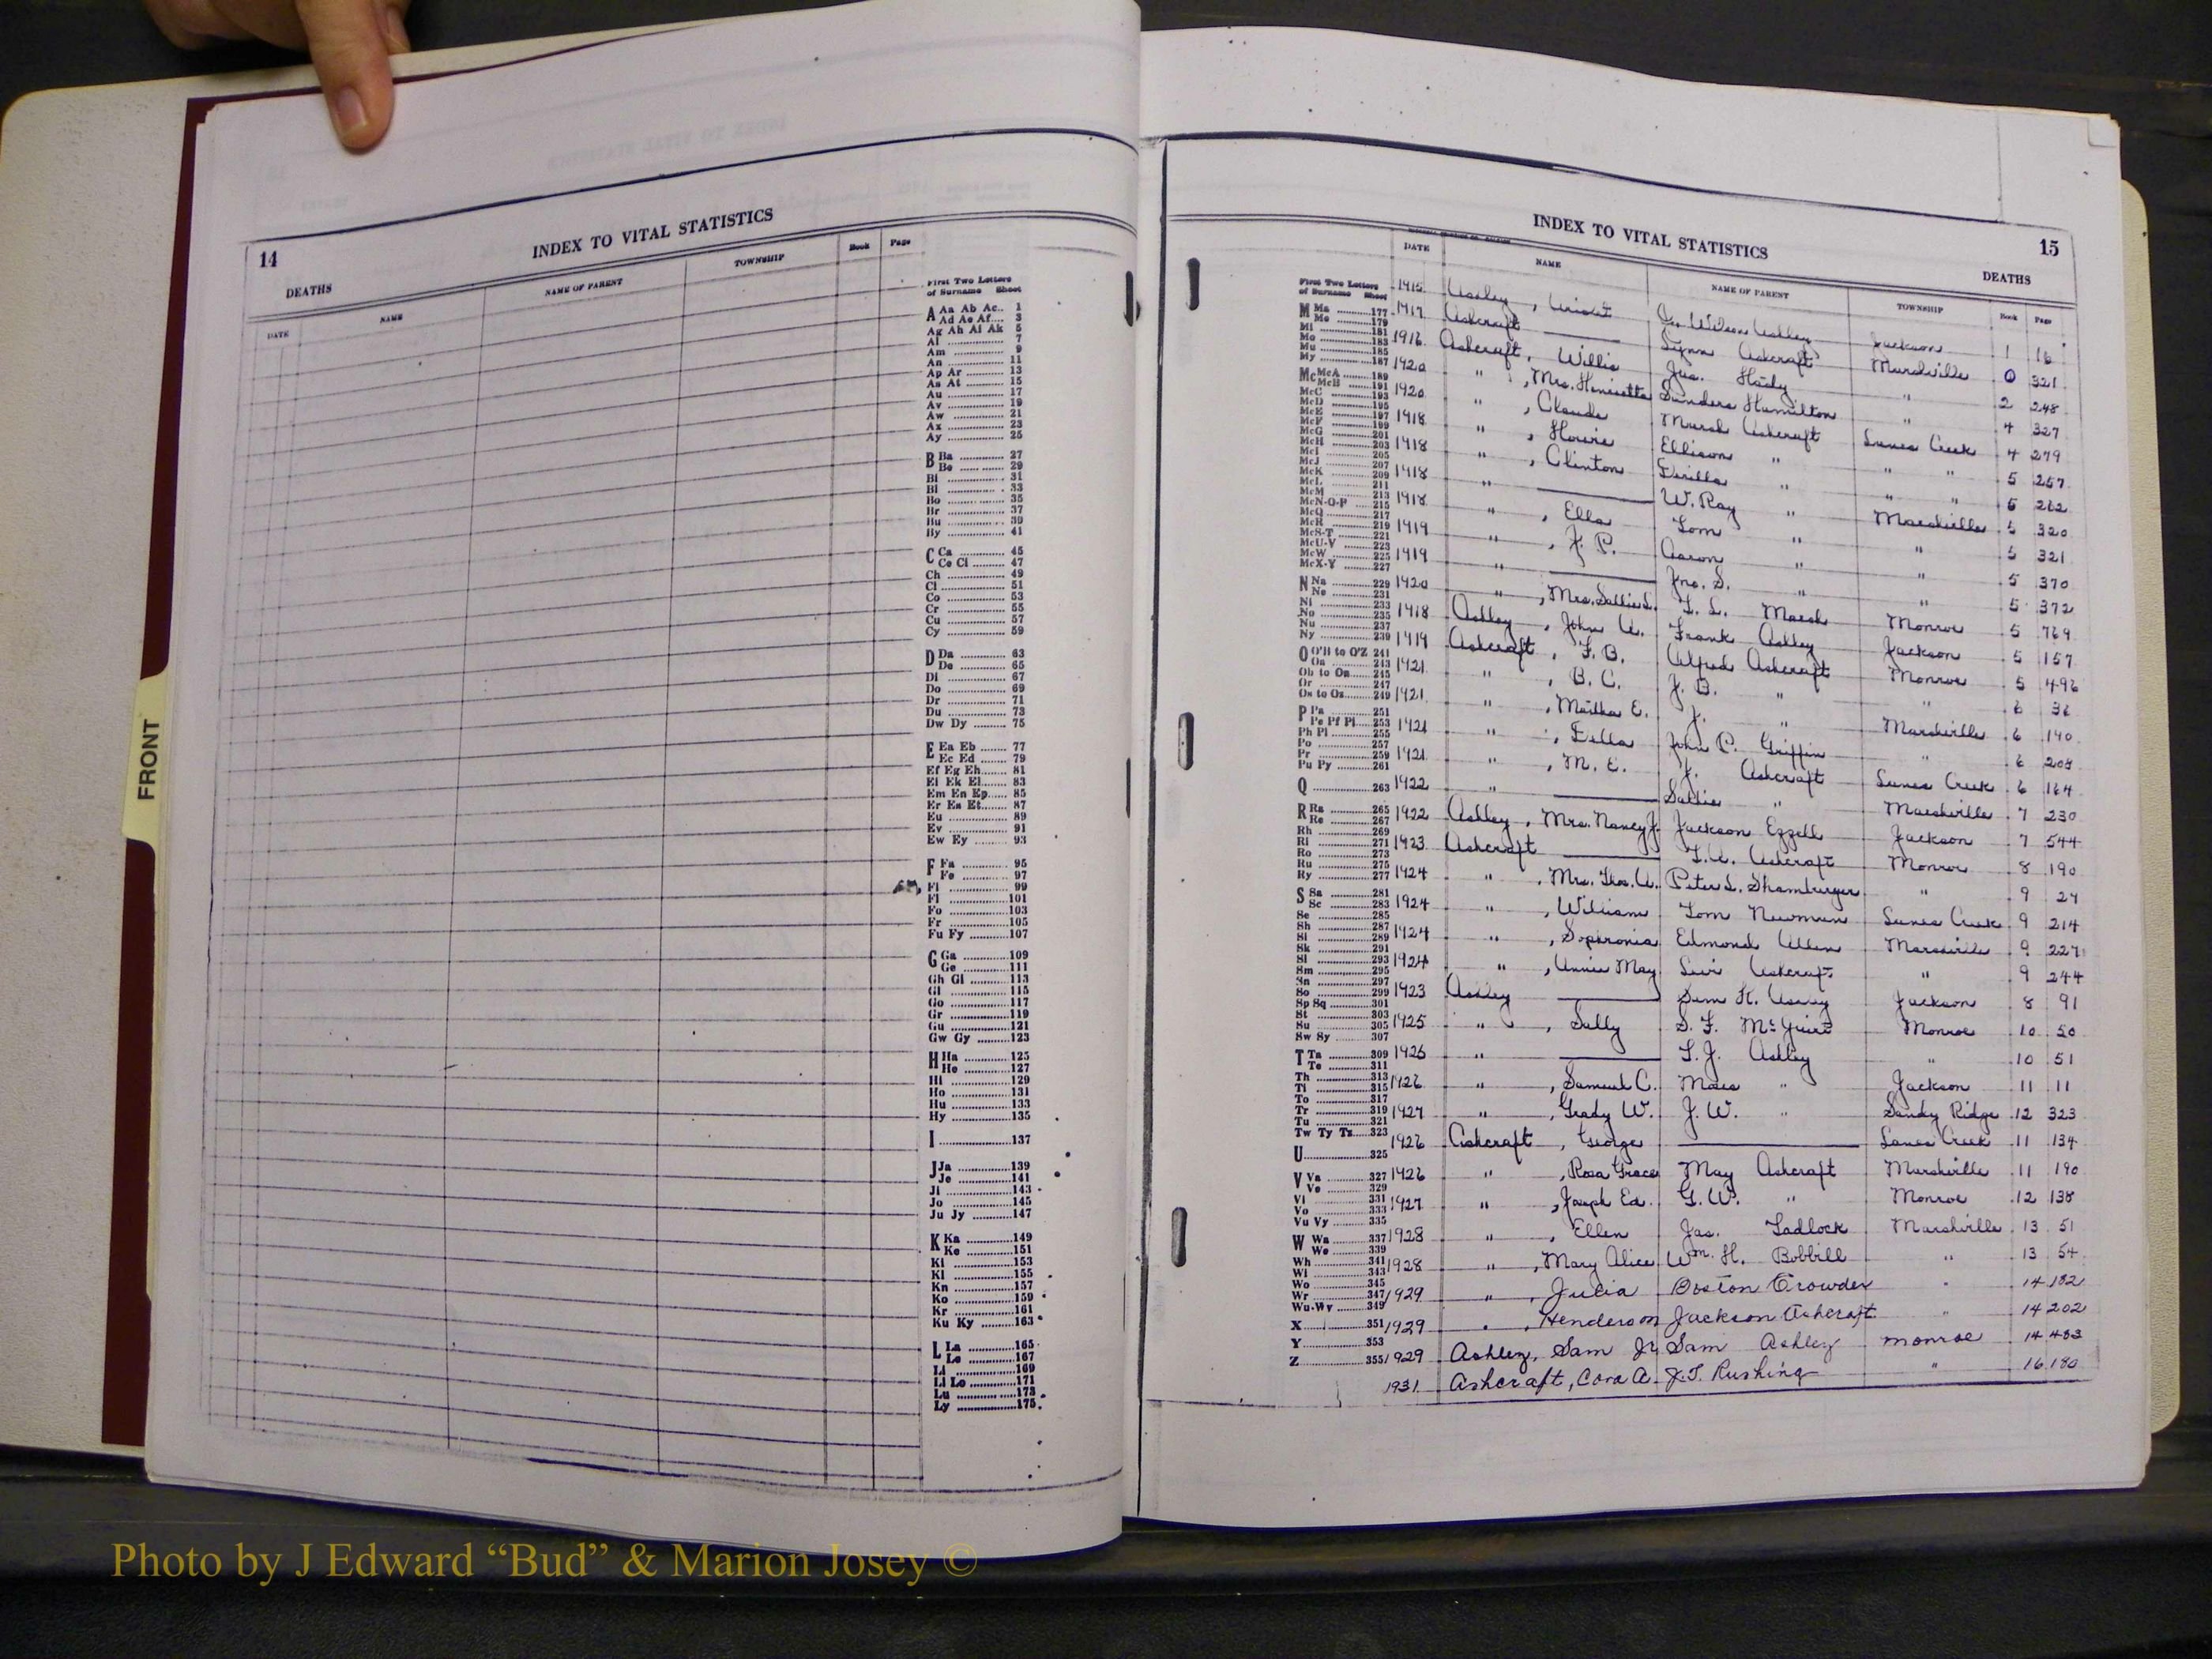 14
INDEX TO VITAL STATISTICS
DEATHS
DATE NAME NAME OF PARENT TOWNSHIP Book Page
First Two Letters
of Surname Sheet
A Aa Ab Ac.. 1
Ad Ae Af.... 3
Ag Ah Ai Ak 5
Al ............... 7
Am .............. 9
An ............... 11
Ap Ar .......... 13
As At .......... 15
Au ............... 17
Av ............... 19
Aw .............. 21
Ax ............... 23
Ay ............... 25
B Ba ............ 27
Be ............ 29
Bi ............... 31
Bl ............... 33
Bo ............... 35
Br ............... 37
Bu ............... 39
By ............... 41
C Ca ............ 45
Ce Ci ........ 47
Ch ............... 49
Cl ............... 51
Co ............... 53
Cr ............... 55
Cu ............... 57
Cy ............... 59
D Da ............ 63
De ............ 65
Di ............... 67
Do ............... 69
Dr ............... 71
Du ............... 73
Dw Dy ........ 75
E Ea Eb ....... 77
Ec Ed ....... 79
Ef Eg Eh....... 81
Ei Ek El....... 83
Em En Ep...... 85
Er Es Et........ 87
Eu ............... 89
Ev ............... 91
Ew Ey ......... 93
F Fa ............ 95
Fe ............ 97
Fi ............... 99
Fl ...............101
Fo ...............103
Fr ...............105
Fu Fy ..........107
G Ga ............109
Ge ............111
Gh Gi ..........113
Gl ...............115
Go ...............117
Gr ...............119
Gu ...............121
Gw Gy .........123
H Ha ............125
He ............127
Hi ...............129
Ho ...............131
Hu ...............133
Hy ...............135
I ..................137
J Ja ............139
Je ............141
Ji ...............143
Jo ...............145
Ju Jy ..........147
K Ka ............149
Ke ............151
Ki ...............153
Kl ...............155
Kn ...............157
Ko ...............159
Kr ...............161
Ku Ky .........163
L La ............165
Le ............167
Li ...............169
Ll Lo ...........171
Lu ...............173
Ly ...............175
FRONT
INDEX TO VITAL STATISTICS
15
DEATHS
DATE NAME NAME OF PARENT TOWNSHIP Book Page
First Two Letters
of Surname Sheet
M Ma .........177
Me .........179
Mi ............181
Mo ............183
Mu ............185
My ............187
Mc McA .......189
McB .......191
McC ............193
McD ............195
McE ............197
McF ............199
McG ............201
McH ............203
McI ............205
McJ ............207
McK ............209
McL ............211
McM ............213
McN-O-P .....215
McQ ............217
McR ............219
McS-T .........221
McU-V .........223
McW ............225
McX-Y .........227
N Na ............229
Ne ............231
Ni ...............233
No ...............235
Nu ...............237
Ny ...............239
O O'B to O'Z 241
Oa ............243
Ob to On......245
Or ...............247
Os to Oz.......249
P Pa ............251
Pe Pf Pi....253
Ph Pl ..........255
Po ...............257
Pr ...............259
Pu Py ..........261
Q ..................263
R Ra ............265
Re ............267
Rh ...............269
Ri ...............271
Ro ...............273
Ru ...............275
Ry ...............277
S Sa ............281
Sc ............283
Se ...............285
Sh ...............287
Si ...............289
Sk ...............291
Sl ...............293
Sm ...............295
Sn ...............297
So ...............299
Sp Sq ..........301
St ...............303
Su ...............305
Sw Sy .........307
T Ta ............309
Te ............311
Th ...............313
Ti ...............315
To ...............317
Tr ...............319
Tu ...............321
Tw Ty Tz.....323
U..................325
V Va ............327
Ve ............329
Vi ...............331
Vo ...............333
Vu Vy .........335
W Wa .........337
We .........339
Wh ............341
Wi ............343
Wo ............345
Wr ............347
Wu-Wy .......349
X..................351
Y..................353
Z..................355
1915 Ashley, Jackson 1 16
1917 Ashcraft Lynn Ashcraft Marshville 0 321
1916 Ashcraft, Willis Jas. Hasty " 2 248
1920 " , Mrs. Henrietta Sanders Hamilton " 4 327
1920 " , Claude Marsh Ashcraft Lanes Creek 4 279
1918 " , Howie Ellison " " " 5 257
1918 " , Clinton " " " 5 262
1918 " W. Ray " Marshville 5 320
1918 " , Ella Tom " " 5 321
1919 " , J. P. Aaron " " 5 370
1919 " Jno. S. " " 5 372
1920 " , Mrs. Sallie L. Marsh Monroe 5 769
1918 Ashley, John A. Frank Ashley Jackson 5 157
1919 Ashcraft, F. B. Alfred Ashcraft Monroe 5 496
1921 " , B. C. J. B. " " 6 36
1921 " , Martha E. J. " Marshville 6 140
1921 " , Della John P. Griffin " 6 208
1921 " , M. E. J. Ashcraft Lanes Creek 6 164
1922 " Sallie " Marshville 7 230
1922 Ashley, Mrs. Nancy J. Jackson Ezzell Jackson 7 544
1923 Ashcraft Ashcraft Monroe 8 190
1924 " , Mrs. Geo. A. Peter L. Shamburger " 9 27
1924 " , William Tom Newman Lanes Creek 9 214
1924 " , Sophronia Edmond Allen Marshville 9 227
1924 " , Annie May Levi Ashcraft " 9 244
1923 Ashley Sam H. Jackson 8 91
1925 " , Sally S. F. McGuirt Monroe 10 50
1925 " L. J. Ashley " 10 51
1926 " , Samuel C. Moses " Jackson 11 11
1927 " , Grady W. J. W. " Sandy Ridge 12 323
1926 Ashcraft, George Lanes Creek 11 134
1926 " , Rosa Grace May Ashcraft Marshville 11 190
1927 " , Joseph Ed. G. W. " Monroe 12 138
1928 " , Ellen Jas. Tadlock Marshville 13 51
1928 " , Mary Alice Wm. H. Bobbill " 13 54
1929 " , Julia Boston Crowder " 14 182
1929 " , Henderson Jackson Ashcraft " 14 202
1929 Ashley, Sam Jr Sam Ashley Monroe 14 483
1931 Ashcraft, Cora A. J. T. Rushing " 16 180
Photo by J Edward “Bud” & Marion Josey ©